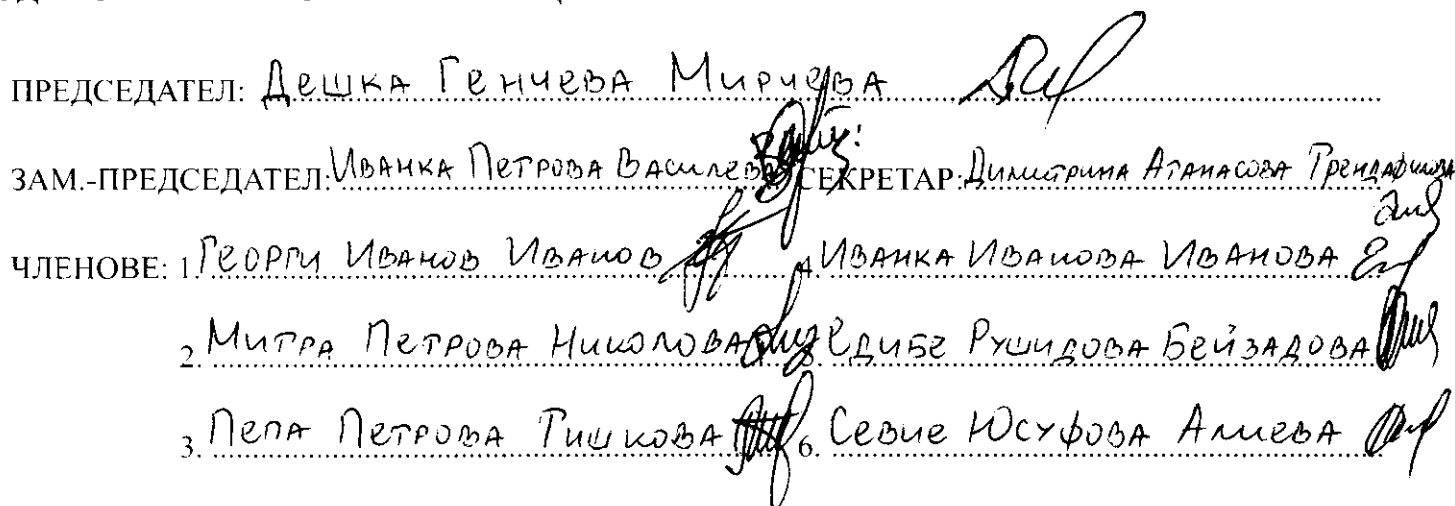 ПРЕДСЕДАТЕЛ: Дешка Генчева Мирчева
ЗАМ.-ПРЕДСЕДАТЕЛ: Иванка Петрова Василева СЕКРЕТАР: Димитрина Атанасова Трендафилова
ЧЛЕНОВЕ: 1. Георги Иванов Иванов 4. Иванка Иванова Иванова
2. Митра Петрова Николова Едибе Рушидова Бейзадова
3. Пепа Петрова Тишкова 6. Севие Юсуфова Алиева